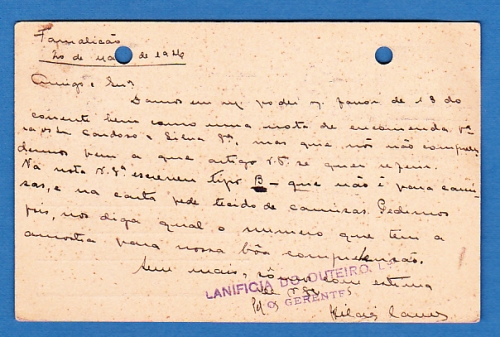 Famalicão
20 de de 1926
Amigo e Snr
Damos em n/ poder o/ favor de 13 do
corrente bem como uma nota de encomenda
Cardoso e Silva que nós não compreen
demos bem a que artigo V. S. se quer referir.
Na nota V. Sª escrevem tipo B - que não é para cami
sas, e na carta pede tecido de camisas. Pedimos
pois, nos diga qual o numero que tem a
amostra para nossa bôa compreensão.
Sem mais, com estima
de V. S.
LANIFICIA DO OUTEIRO, L.
OS GERENTES